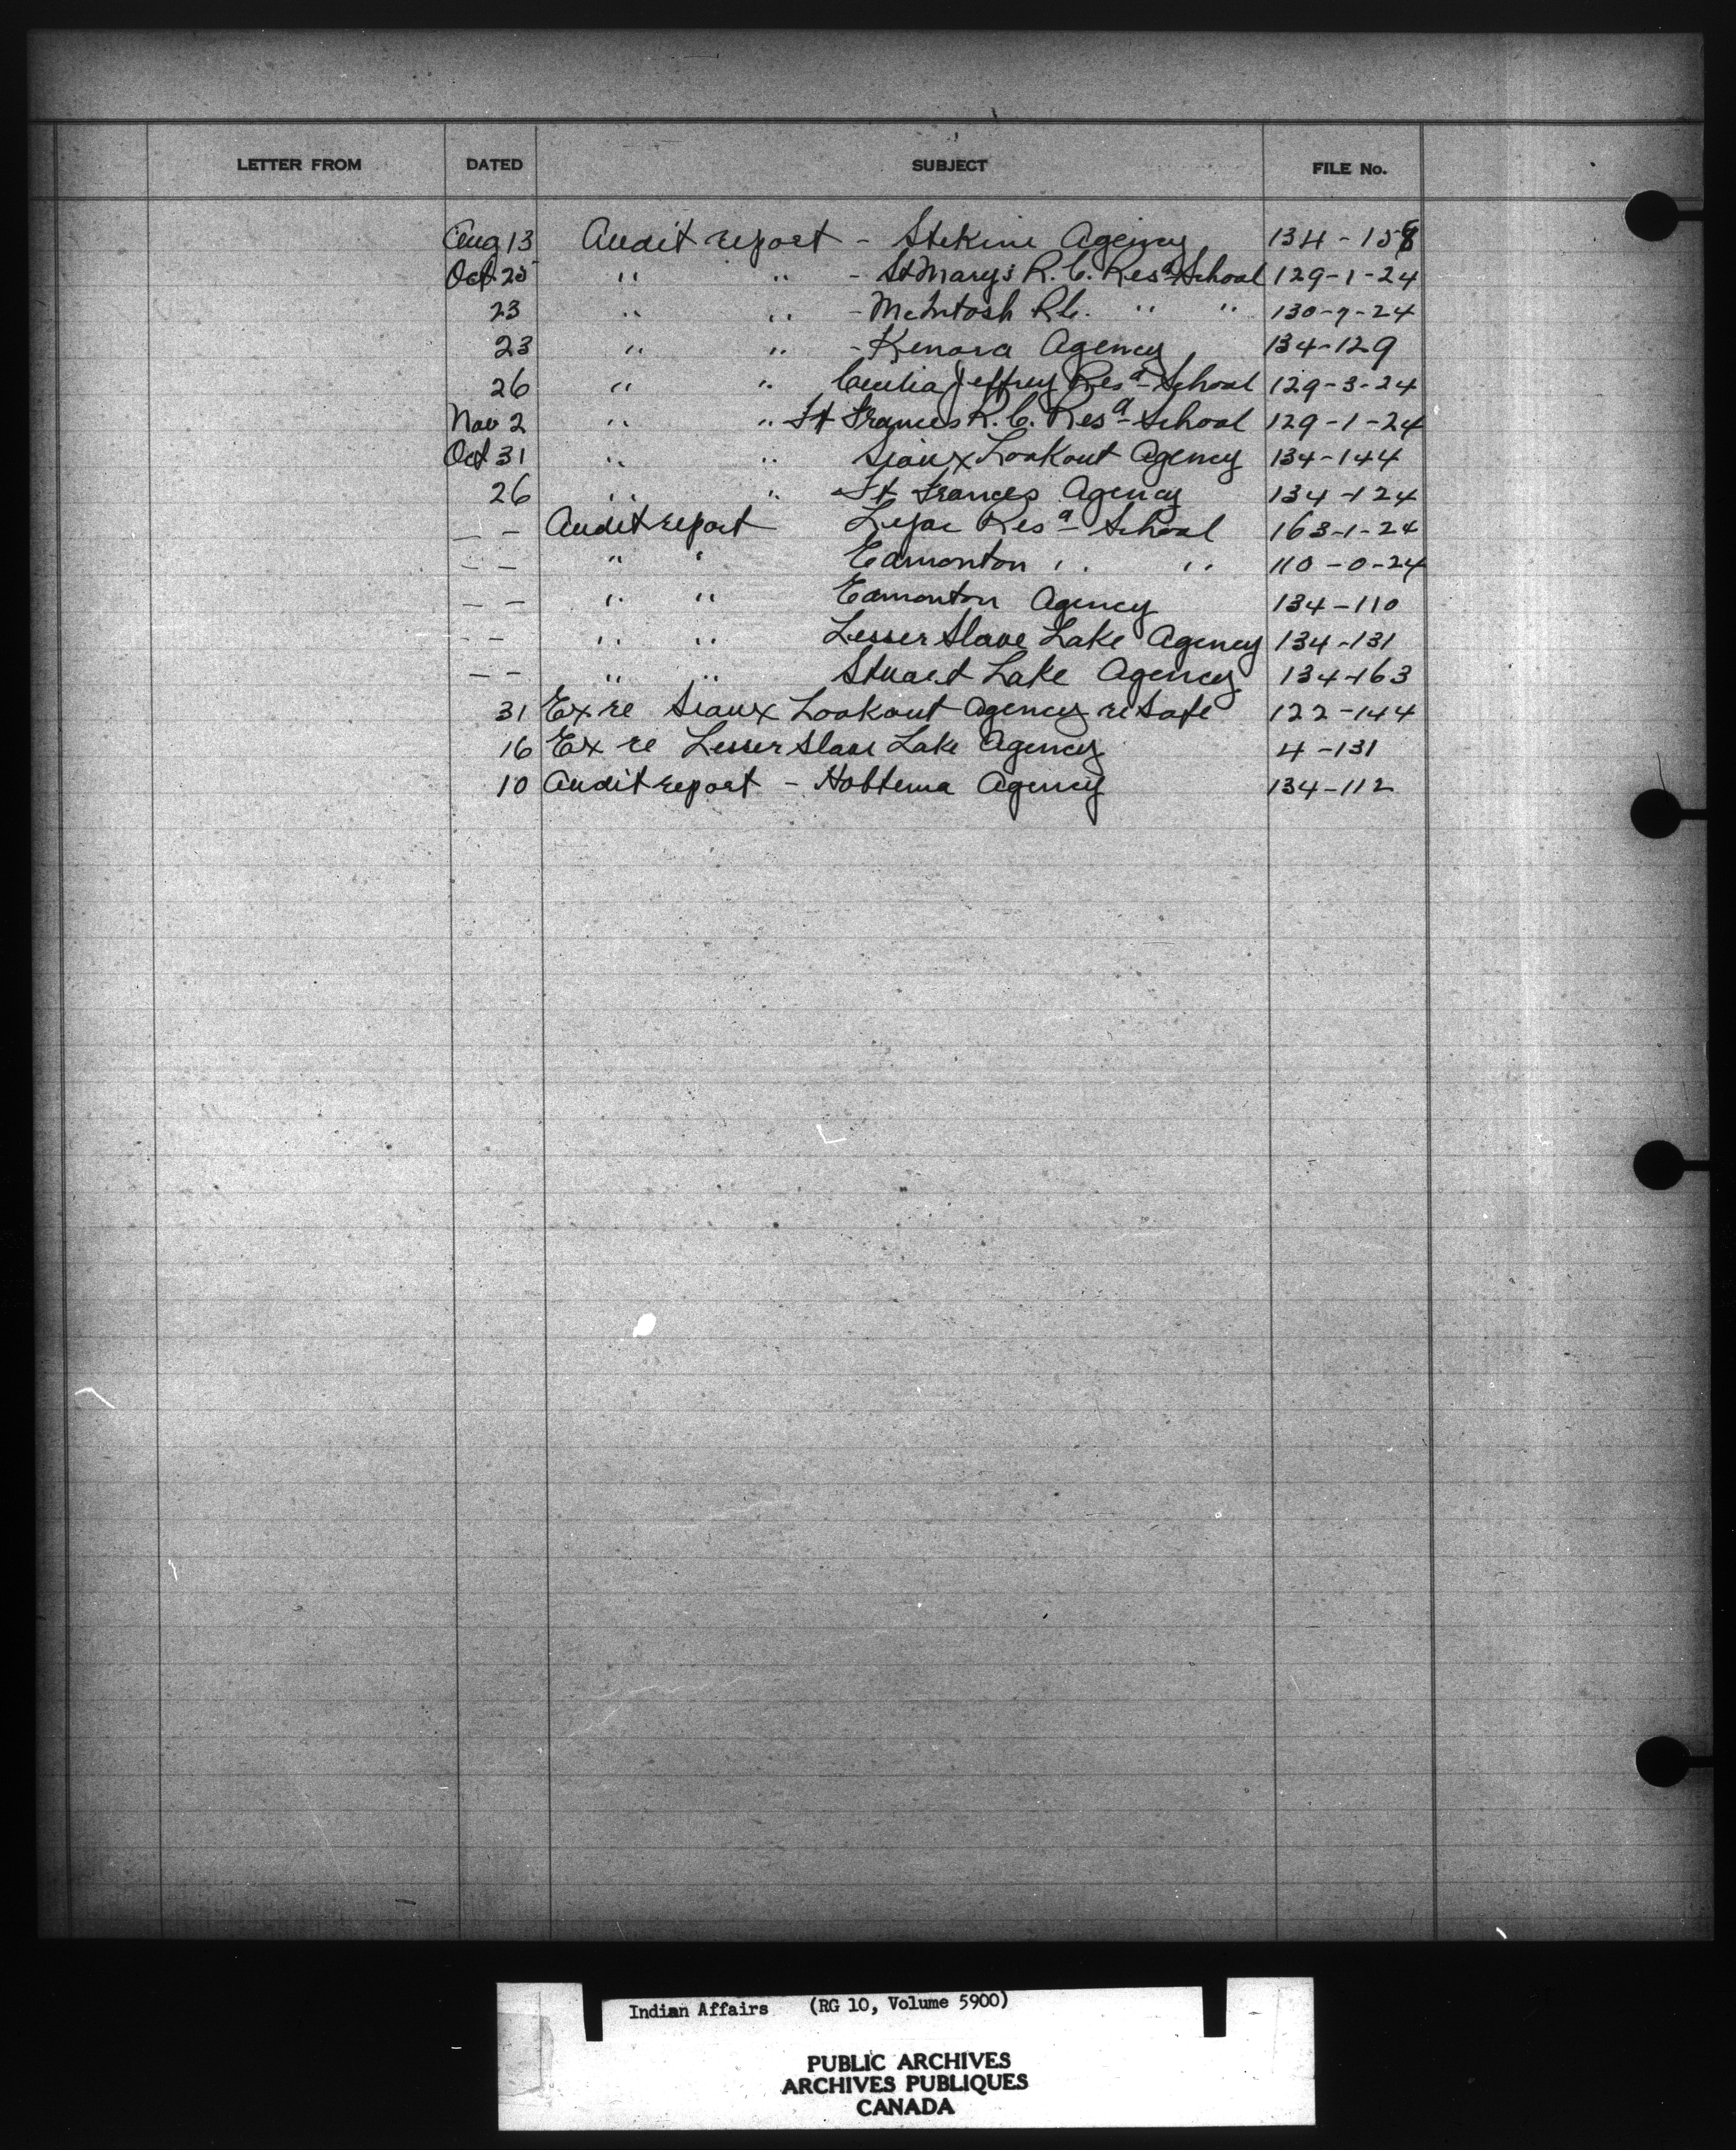 LETTER FROM DATED SUBJECT FILE No.
Aug 13 Audit report - Stekine Agency 134-158
Oct 25 " " - St Mary's R.C. Resa School 129-1-24
23 " " - McIntosh R.C. " " 130-7-24
23 " " - Kenora Agency 134-129
26 " " Cecilia Jeffrey Resa School 129-3-24
Nov 2 " " Ft Frances R.C. Resa School 129-1-24
Oct 31 " " Sioux Lookout Agency 134-144
26 " " Ft Frances Agency 134-124
- - Audit report Lejac Resa School 163-1-24
- - " " Edmonton " " 110-0-24
- - " " Edmonton Agency 134-110
- - " " Lesser Slave Lake Agency 134-131
- - " " Stuart Lake Agency 134-163
31 Ex re Sioux Lookout Agency re Safe 122-144
16 Ex re Lesser Slave Lake Agency 4-131
10 Audit report - Hobbema Agency 134-112
Indian Affairs (RG 10, Volume 5900)
PUBLIC ARCHIVES
ARCHIVES PUBLIQUES
CANADA